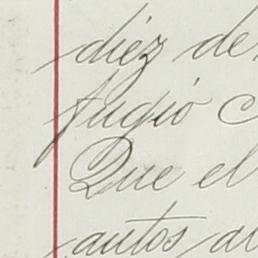 diez de
fugio
Que el
autos al